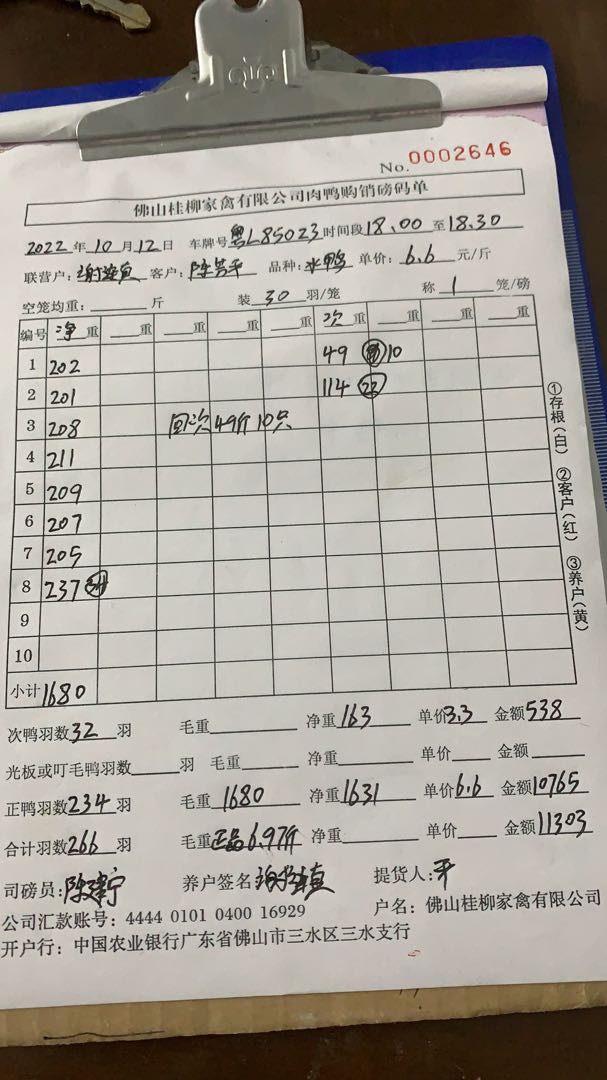 No. 0002646
佛山桂柳家禽有限公司肉鸭购销磅码单
2022年10月12日 车牌号粤L85023时间段18.00至18.30
联营户: 客户:陈 平 品种:水鸭 单价:6.6元/斤
空笼均重:____斤 装30羽/笼 称1笼/磅
编号 净重 __重 __重 __重 __重 次重 __重 __重 __重
1 202 49 10
2 201 114 22
3 208 回次49斤10只
4 211
5 209
6 207
7 205
8 237 34
9
10
小计 1680
①存根(白) ②客户(红) ③养户(黄)
次鸭羽数32羽 毛重____ 净重163 单价3.3 金额538
光板或叮毛鸭羽数____羽 毛重____ 净重____ 单价____ 金额____
正鸭羽数234羽 毛重1680 净重1631 单价6.6 金额10765
合计羽数266羽 毛重正品6.97斤 净重____ 单价____ 金额11303
司磅员:陈建宁 养户签名: 提货人:平
公司汇款账号: 4444 0101 0400 16929 户名:佛山桂柳家禽有限公司
开户行:中国农业银行广东省佛山市三水区三水支行